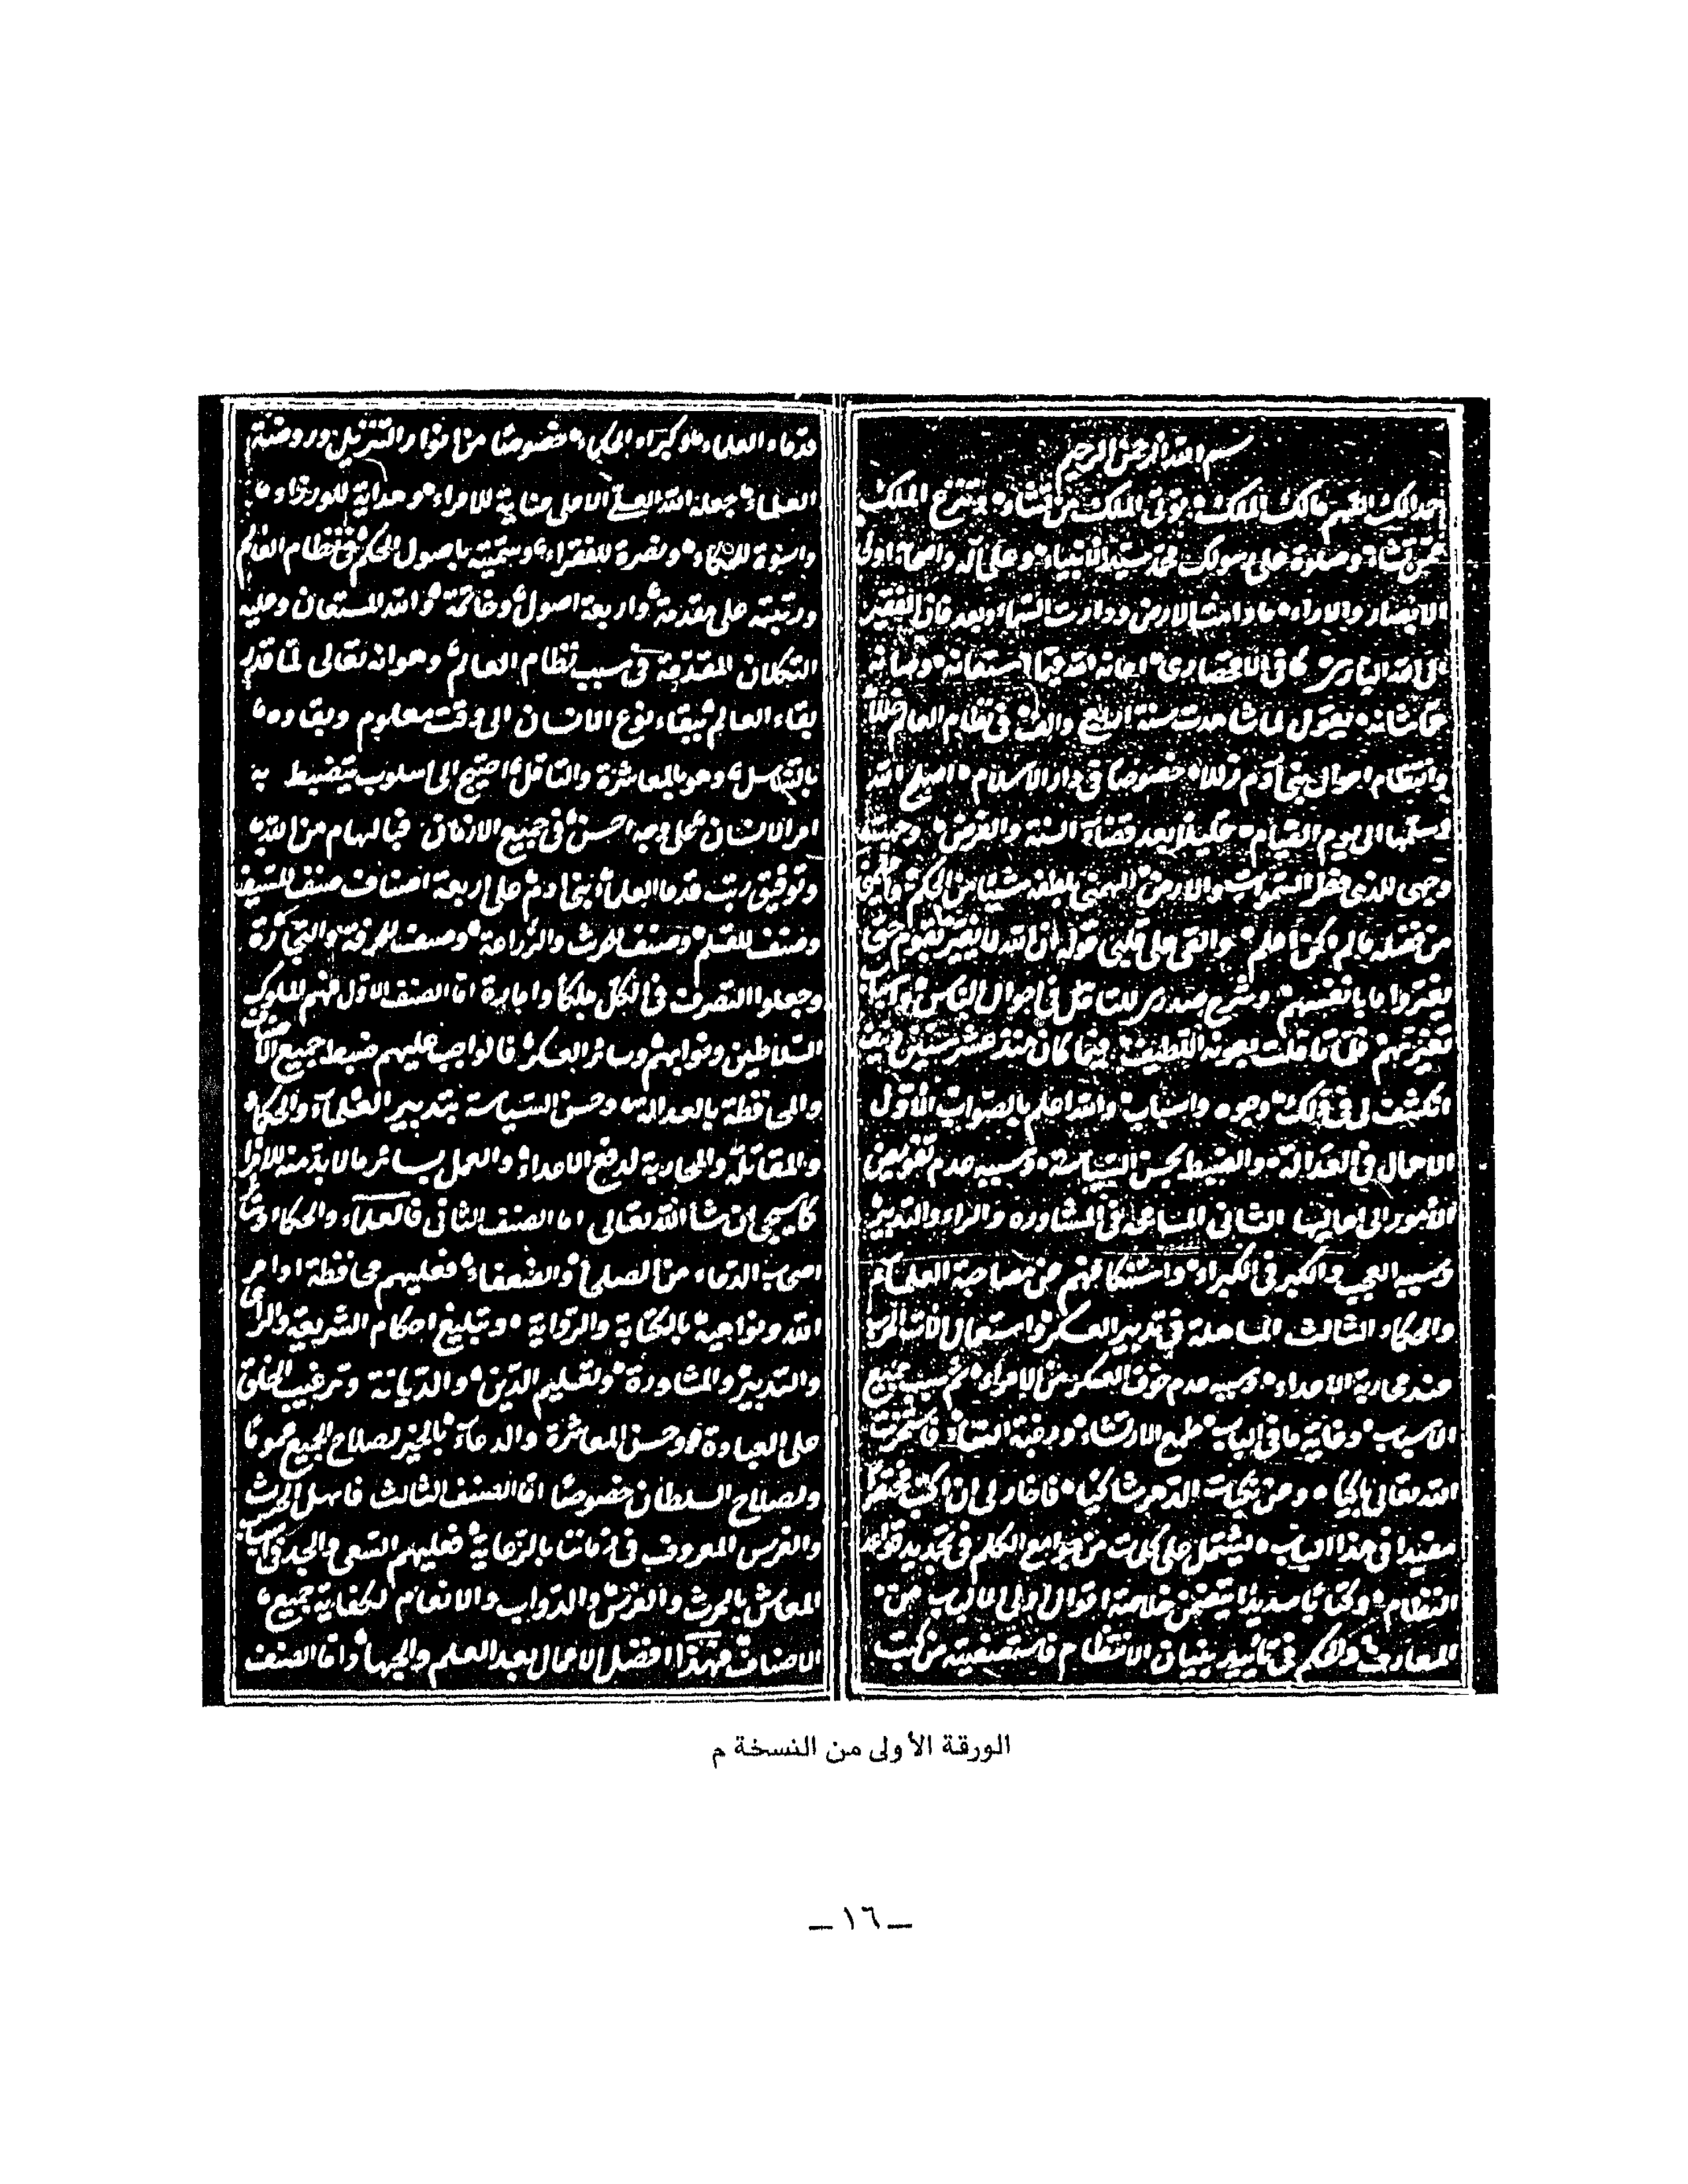 بسم الله الرحمن الرحيم
احمدك اللهم مالك الملك تؤتى الملك من تشاء وتنزع الملك
ممن تشاء وصلوة على رسولك محمد سيد الأنبياء وعلى آله واصحابه اولى
الابصار والاراء ما دامت الارض ودارت السماء وبعد فان الفقير
الى الله البارى كافى الاقحصارى اعانه الله فيما استعانه وصانه
عما شانه يقول لما شاهدت سنة اربع والف فى نظام العالم خللا
وانتظام احوال بنى آدم زللا خصوصا فى دار الاسلام اصلح الله
وسلمها الى يوم القيام فليلا بعد قضاء السنة والفرض وجهت
وجهى للذى فطر السموات والارض الهمنى بلطفه شيئا من الحكم
من فضله ما لم اكن اعلم والقى على قلبى قوله ان الله لا يغير ما بقوم حتى
يغيروا ما بانفسهم وشرح صدرى للتأمل فى احوال الناس واسباب
تغيرهم فلما تأملت بعونه اللطيف فيما كان منذ عشر سنين
انكشفت لى فى ذلك وجوه واسباب والله اعلم بالصواب الأول
الاهمال فى العدالة والضبط بحسن السياسة وسببه عدم تفويض
الأمور الى اهاليها الثانى المسامحة فى المشاوره والراء والتدبير
وسببه العجب والكبر فى الكبراء واستنكافهم عن مصاحبة العلماء
والحكماء الثالث المساهلة فى تدبير العسكر واستعمال الات الحرب
عند محاربة الاعداء وسببه عدم خوف العسكر من الامراء ثم سبب جميع
الاسباب وغاية ما فى الباب طمع الارتشاء ورغبة النساء فاستخرت
الله تعالى باكيا ومن نكبات الدهر شاكيا فاختار لى ان اكتب مختصرا
مفيدا فى هذا الباب ليشتمل على كلمات من جوامع الكلم فى تجديد قواعد
النظام وكتابا سديدا يتضمن خلاصة اقوال اولى الالباب من
المعارف والحكم فى تأييد بنيان الانتظام فاستصفيته من كتب
قدماء العلماء وكبراء الحكماء خصوصا من انوار التنزيل وروضة
العلماء جعله الله العلى الاعلى عناية للامراء وهداية للوزراء
واسوة للحكماء ونصرة للفقراء وسميته باصول الحكم فى نظام العالم
ورتبته على مقدمة واربعة اصول وخاتمة والله المستعان وعليه
التكلان المقدمة فى سبب نظام العالم وهو انه تعالى لما قدر
بقاء العالم ببقاء نوع الانسان الى وقت معلوم وبقاوه
بالتناسل وهو بالمعاشرة والتأمل احتيج الى اسلوب يتضبط به
امر الانسان على وجه احسن فى جميع الازمان فبالهام من الله
وتوفيق رتب قدما العلماء بنى ادم على اربعة اصناف صنف للسيف
وصنف للقلم وصنف للحرث والزراعة وصنف للحرفة والتجارة
وجعلوا التصرف فى الكل ملكا وامارة اما الصنف الاول فهم الملوك
السلاطين ونوابهم وسائر العسكر فالواجب عليهم ضبط جميع الاصناف
والمحافظة بالعدالة وحسن السياسة بتدبير العلماء والحكماء
والمقاتلة والمحاربة لدفع الاعداء والعمل بسائر ما لا بد منه للامراء
كما سيجئ ان شاء الله تعالى اما الصنف الثانى فالعلماء والحكماء
اصحاب الدعاء من الصلحاء والضعفاء فعليهم محافظة اوامر
الله ونواهيه بالكتابة والرواية وتبليغ احكام الشريعة والراى
والتدبير والمشاورة وتعليم الدين والديانة وترغيب الخلق
على العبادة وحسن المعاشرة والدعاء بالخير لصلاح الجميع عموما
ولصلاح السلطان خصوصا اما الصنف الثالث فاهل الحرث
والغرس المعروف فى زماننا بالرعاية فعليهم السعى والجد فى اسباب
المعاش بالحرث والغرس والدواب والانعام لكفاية جميع
الاصناف فهذا افضل الاعمال بعد العلم والجهاد واما الصنف
الورقة الأولى من النسخة م
– ١٦ –